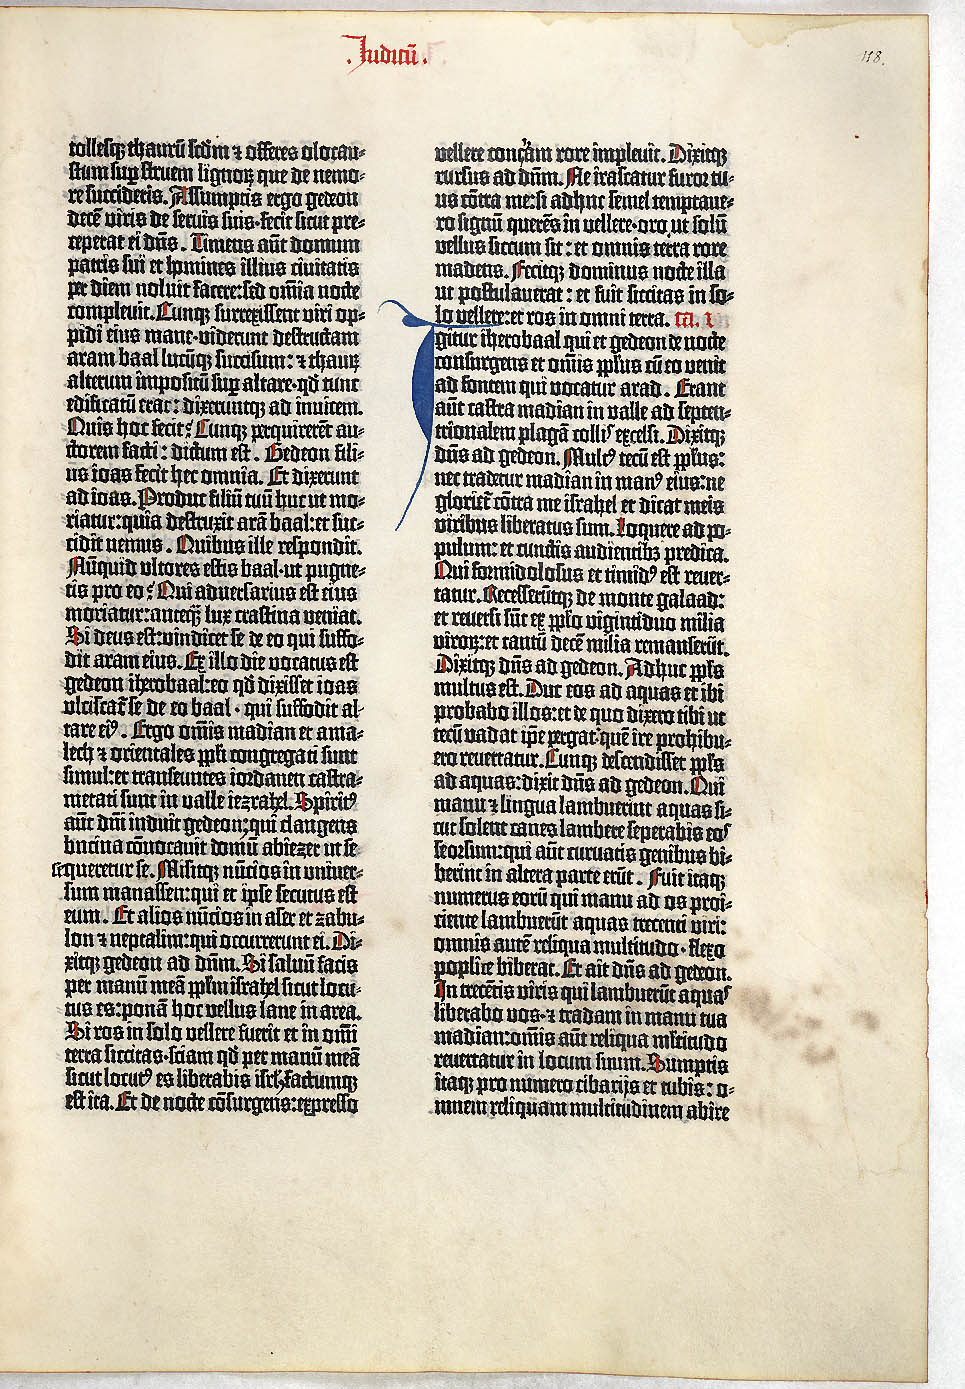 Iudicū.
118.
tollesq̢ thaurū scd̄m ⁊ offeres olocau-
stum sup̱ struem lignoꝝ que de nemo-
re succideris. Assumptis ergo gedeon
decē viris de servis suis· fecit sicut pre-
ceperat ei dn̄s. Timens aūt domum
patris sui et homines illius civitatis
per diem noluit facere: sed om̄ia nocte
complevit. Cunq̢ surrexissent viri op-
pidi eius mane· viderunt destructam
aram baal lucūq̢ succisum: ⁊ thauꝝ
alterum impositū sup̱ altare· qd̄ tunc
edificatū erat: dixeruntq̢ ad invicem.
Quis hoc fecit? Cunq̢ perquirerēt au-
ctorem facti: dictum est. Gedeon fili-
us ioas fecit hec omnia. Et dixerunt
ad ioas. Produc filiū tuū huc ut mo-
riatur: quia destruxit arā baal: et suc-
cidit nemus. Quibus ille respondit.
Nūquid ultores estis baal· ut pugne-
tis pro eo? Qui adversarius est eius
moriatur: anteq̄ lux crastina veniat.
Si deus est: vindicet se de eo qui suffo-
dit aram eius. Ex illo die vocatus est
gedeon iherobaal: eo qd̄ dixisset ioas
ulciscat̄ se de eo baal· qui suffodit al-
tare eiꝰ. Ergo om̄is madian et ama-
lech ⁊ orientales pp̄li congregati sunt
simul: et transeuntes iordanen castra-
metati sunt in valle iezrahel. Spiritꝰ
aūt dn̄i induit gedeon: qui clangens
bucina cōvocavit domū abiezer ut se-
sequeretur se. Misitq̢ nūcios in univer-
sum manassen: qui et ipse secutus est
eum. Et alios nūcios in aser et zabu-
lon ⁊ neptalim: qui occurrerunt ei. Di-
xitq̢ gedeon ad dn̄m. Si salvū facis
per manū meā pp̄lm israhel sicut locu-
tus es: ponā hoc vellus lane in area.
Si ros in solo vellere fuerit et in om̄i
terra siccitas· sciam qd̄ per manū meā
sicut locutꝰ es liberabis isrl̄. Factumq̢
est ita. Et de nocte cōsurgens: expresso
vellere concam rore implevit. Dixitq̢
rursus ad dn̄m. Ne irascatur furor tu-
us cōtra me: si adhuc semel temptave-
ro signū querēs in vellere· oro ut solū
vellus siccum sit: et omnis terra rore
madens. Fecitq̢ dominus nocte illa
ut postulaverat: et fuit siccitas in so-
lo vellere: et ros in omni terra. Ca.
Igitur iherobaal qui et gedeon de nocte
consurgens et om̄is pp̄lus cū eo venit
ad fontem qui vocatur arad. Erant
aūt castra madian in valle ad septen-
trionalem plagā collis excelsi. Dixitq̢
dn̄s ad gedeon. Multꝰ tecū est pp̄lus:
nec tradetur madian in manꝰ eius: ne
gloriet̄ cōtra me israhel et dicat meis
viribus liberatus sum. Loquere ad po-
pulum: et cunctis audientibꝫ predica.
Qui formidolosus et timidꝰ est rever-
tatur. Recesserūtq̢ de monte galaad:
et reversi sūt ex pp̄lo viginti duo milia
viroꝝ: et tantū decē milia remanserūt.
Dixitq̢ dn̄s ad gedeon. Adhuc pp̄ls
multus est. Duc eos ad aquas et ibi
probabo illos: et de quo dixero tibi ut
tecū vadat ip̄e pergat· quē ire prohibu-
ero revertatur. Cunq̢ descendisset pp̄ls
ad aquas: dixit dn̄s ad gedeon. Qui
manu ⁊ lingua lambuerint aquas si-
cut solent canes lambere seperabis eos
seorsum: qui aūt curvatis genibus bi-
berint in altera parte erūt. Fuit itaq̢
numerus eorū qui manu ad os proi-
ciente lambuerūt aquas trecenti viri:
omnis autē reliqua multitudo· flexo
poplite biberat. Et ait dn̄s ad gedeon.
In trecētis viris qui lambuerūt aquas
liberabo vos· ⁊ tradam in manu tua
madian: om̄is aūt reliqua ml̄titudo
revertatur in locum suum. Sumptis
itaq̢ pro numero cibarijs et tubis: o-
mnem reliquam multitudinem abire